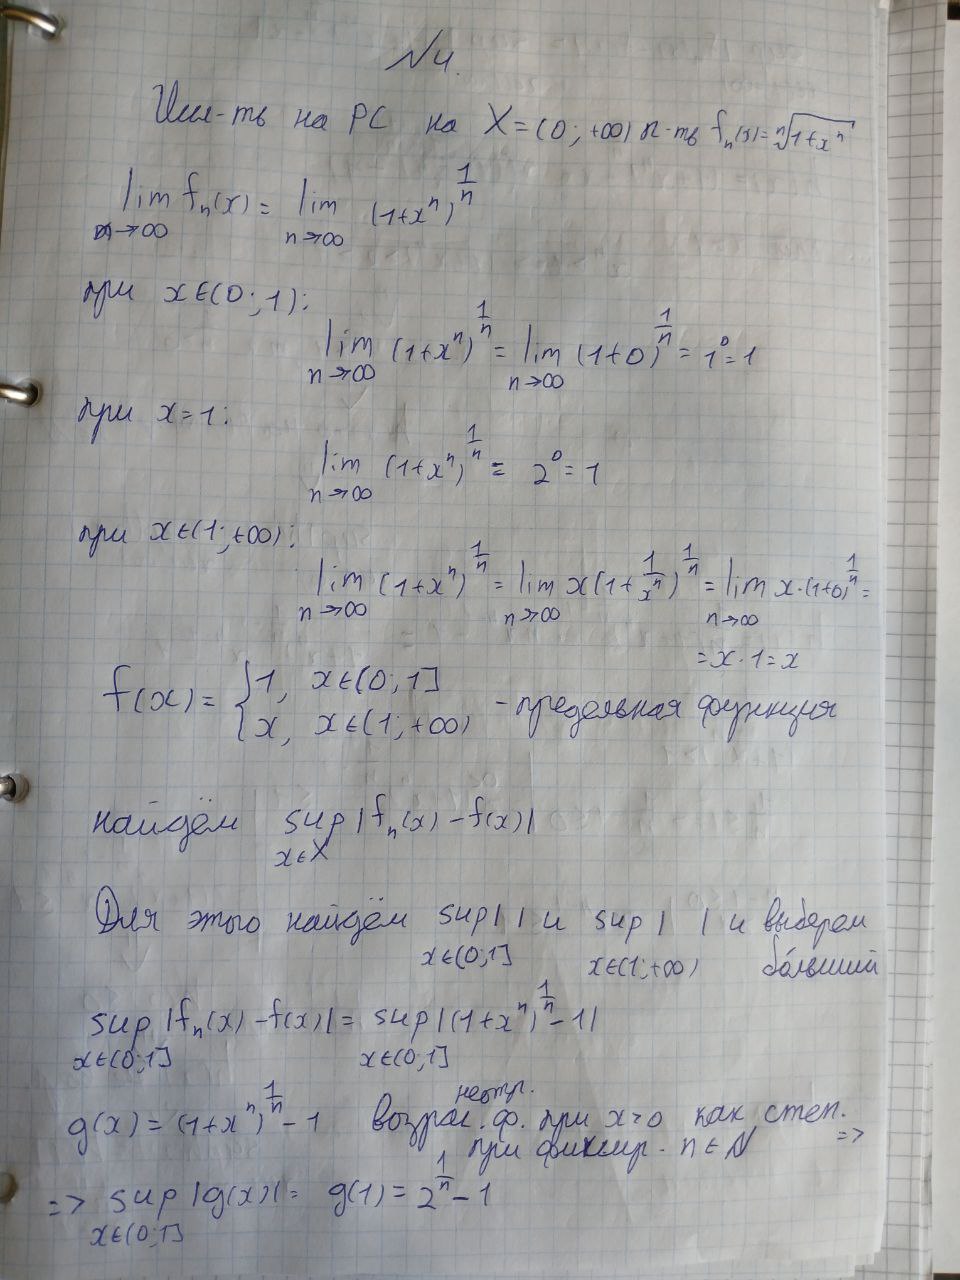 N4.
Исл-ть на РС на X=(0;+∞) п-ть fₙ(x)=ⁿ√(1+xⁿ)
lim fₙ(x) = lim (1+xⁿ)^(1/n)
n→∞ n→∞
при x∈(0;1):
lim (1+xⁿ)^(1/n) = lim (1+0)^(1/n) = 1⁰=1
n→∞ n→∞
при x=1:
lim (1+xⁿ)^(1/n) = 2⁰=1
n→∞
при x∈(1;+∞):
lim (1+xⁿ)^(1/n) = lim x(1+1/xⁿ)^(1/n) = lim x·(1+0)^(1/n) =
n→∞ n→∞ n→∞
=x·1=x
f(x) = { 1, x∈(0;1]
x, x∈(1;+∞) - предельная функция
найдём sup |fₙ(x)-f(x)|
x∈X
Для этого найдём sup| | и sup| | и выберем
x∈(0;1] x∈(1;+∞) бо́льший
sup |fₙ(x)-f(x)| = sup |(1+xⁿ)^(1/n)-1|
x∈(0;1] x∈(0;1]
неотр.
g(x) = (1+xⁿ)^(1/n) - 1 возрас. ф. при x>0 как степ.
при фиксир. n∈N =>
=> sup |g(x)| = g(1) = 2^(1/n) - 1
x∈(0;1]